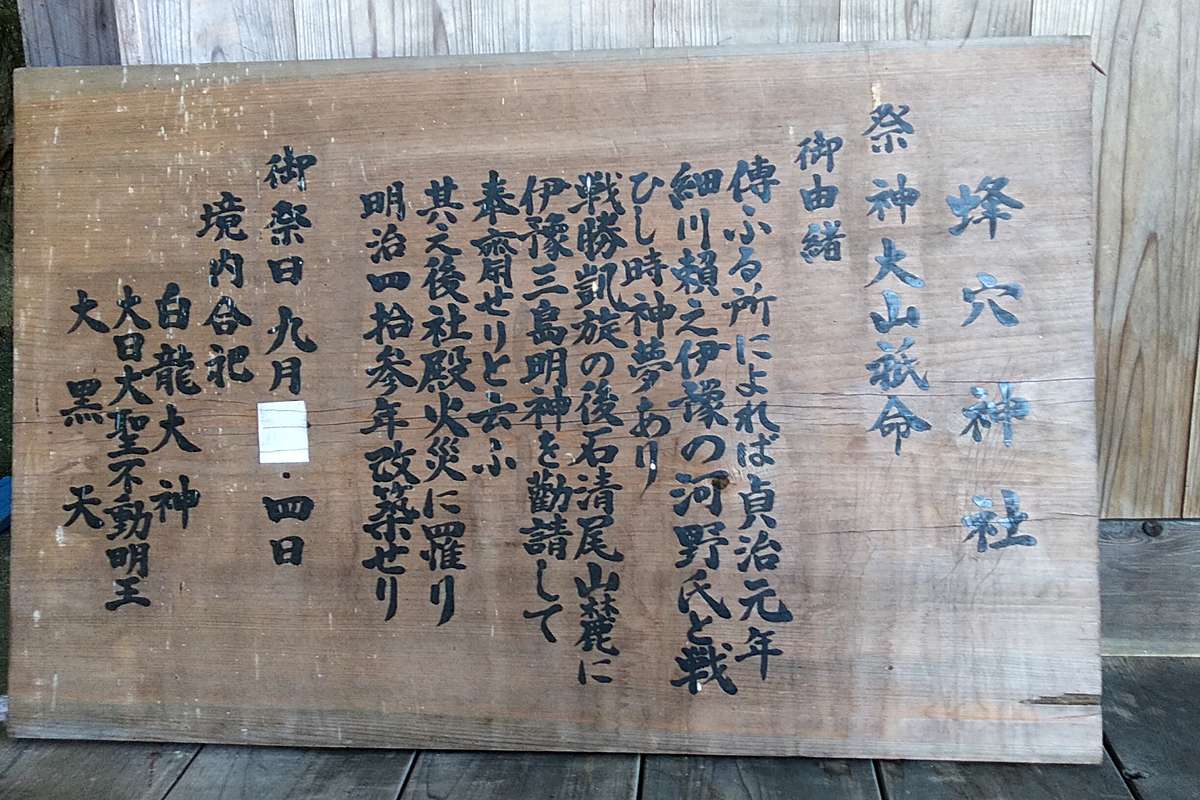 蜂穴神社
祭神大山祇命
御由緒
傳ふる所によれば貞治元年
細川頼之伊豫の河野氏と戦
ひし時神夢あり
戦勝凱旋の後石清尾山麓に
伊豫三島明神を勸請して
奉齋せりと云ふ
其之後社殿火災に罹り
明治四拾参年改築せり
御祭日 九月 ・四日
境内合祀
白龍大神
大日大聖不動明王
大黒天